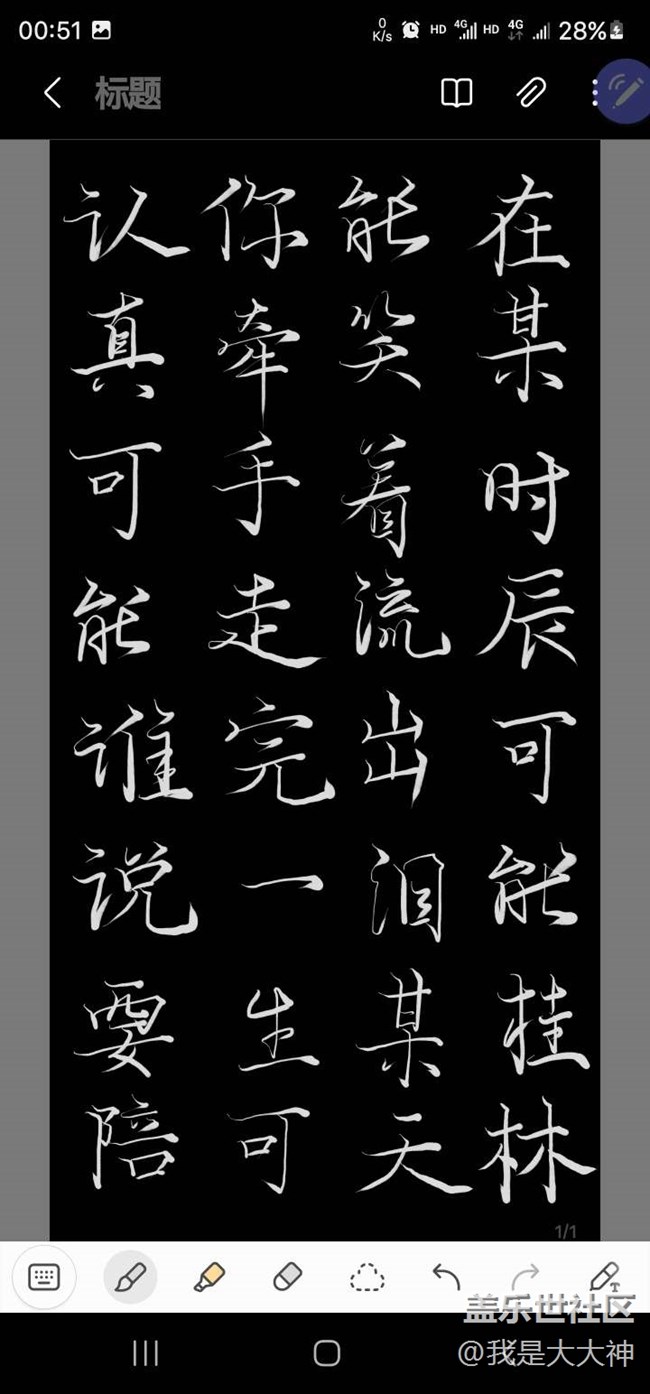 00:51
0 K/s HD 4G HD 4G 28%
标题
在某时辰可能桂林
能笑着流出泪某天
你牵手走完一生可
认真可能谁说要陪
1/1
盖乐世社区
@我是大大神